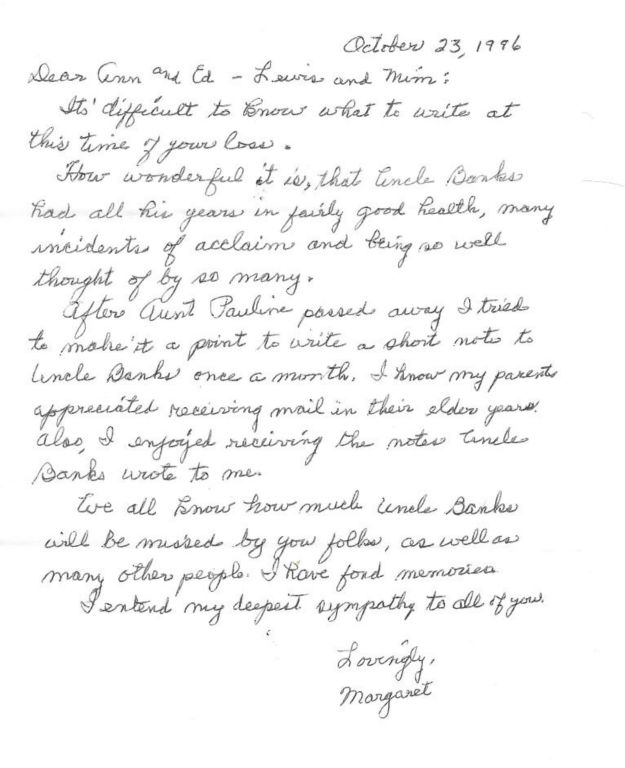 October 23, 1996
Dear Ann and Ed - Lewis and Mim:
Its' difficult to know what to write at
this time of your loss.
How wonderful it is, that Uncle Banks
had all his years in fairly good health, many
incidents of acclaim and being so well
thought of by so many.
After Aunt Pauline passed away I tried
to make it a point to write a short note to
Uncle Banks once a month. I know my parents
appreciated receiving mail in their elder years.
Also, I enjoyed receiving the notes Uncle
Banks wrote to me.
We all know how much Uncle Banks
will be missed by you folks, as well as
many other people. I have fond memories
I extend my deepest sympathy to all of you.
Lovingly,
Margaret